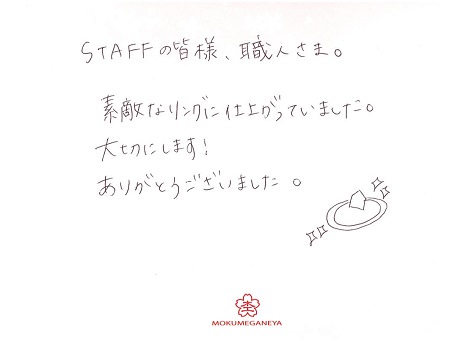 STAFFの皆様、職人さま。
素敵なリングに仕上がっていました。
大切にします!
ありがとうございました。
MOKUMEGANEYA